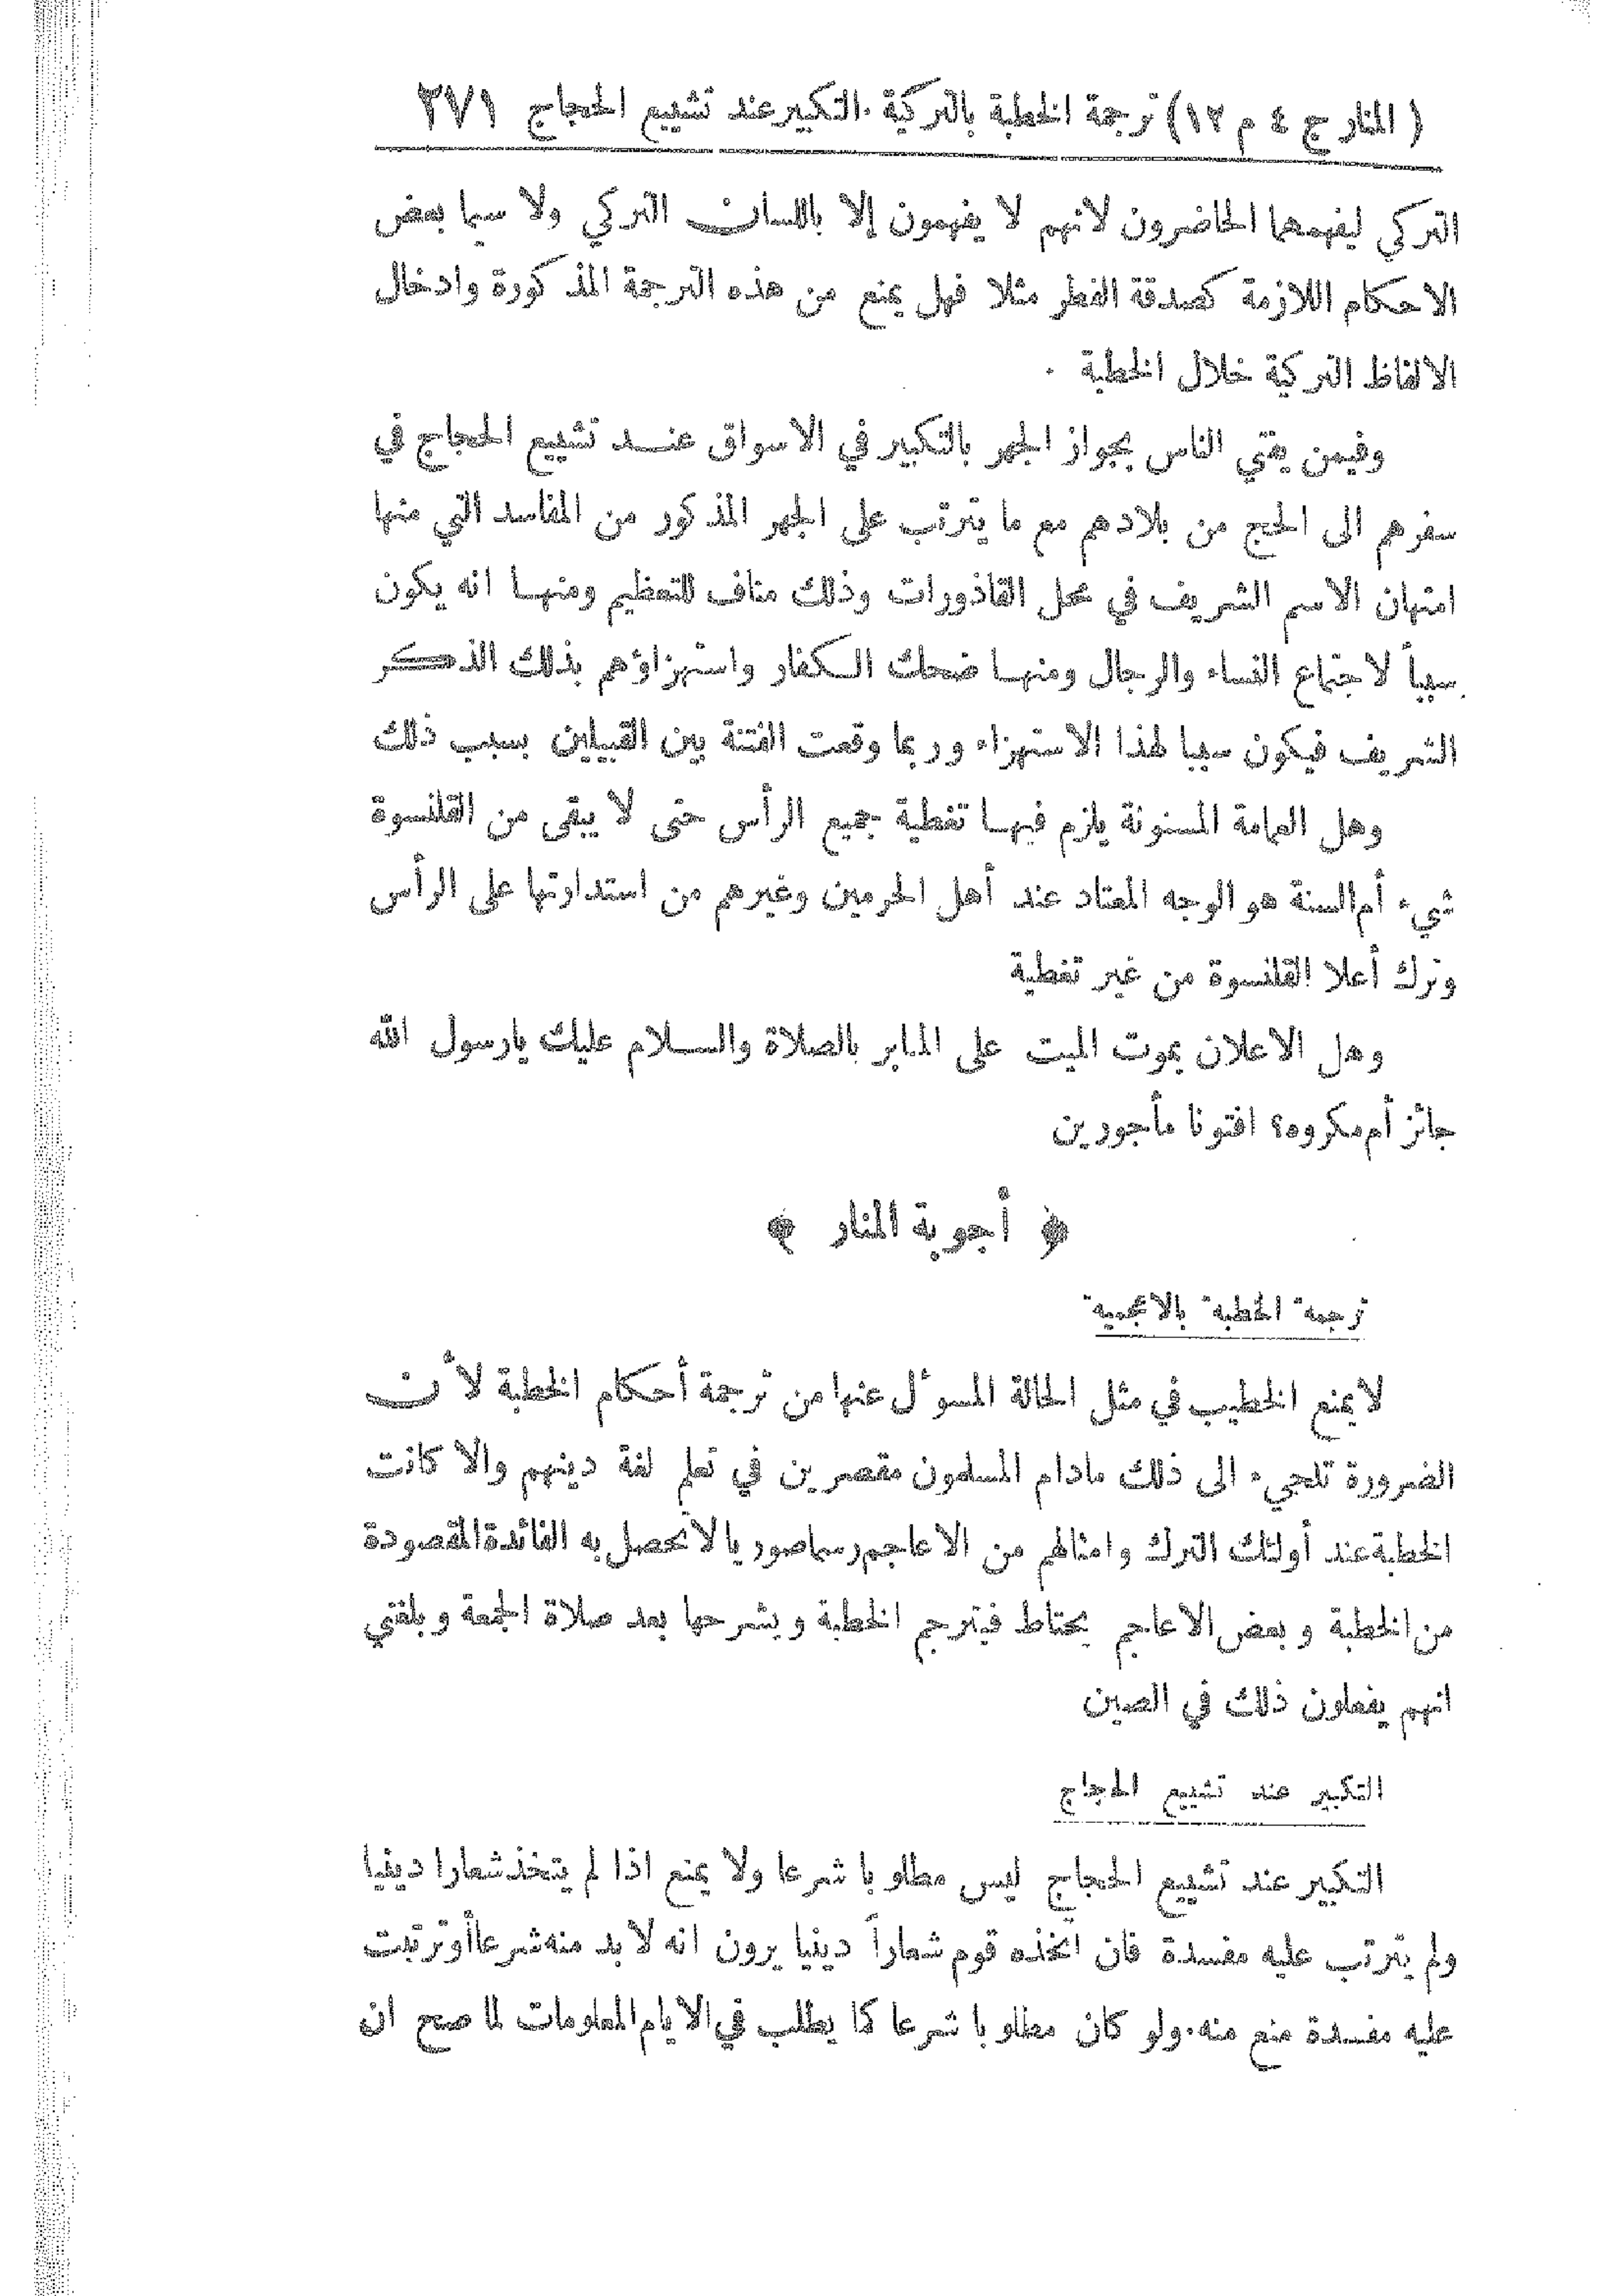 ( المنار ج ٤ م ١٢) ترجمة الخطبة بالتركية . التكبير عند تشييع الحجاج ٢٧١
التركي ليفهمها الحاضرون لانهم لا يفهمون إلا باللسان التركي ولا سيما بعض
الاحكام اللازمة كصدقة الفطر مثلا فهل يمنع من هذه الترجمة المذكورة وادخال
الالفاظ التركية خلال الخطبة .
وفيمن يفتي الناس بجواز الجهر بالتكبير في الاسواق عند تشييع الحجاج في
سفرهم الى الحج من بلادهم مع ما يترتب على الجهر المذكور من المفاسد التي منها
امتهان الاسم الشريف في محل القاذورات وذلك مناف للتعظيم ومنها انه يكون
سبباً لاجتماع النساء والرجال ومنها ضحك الكفار واستهزاؤهم بذلك الذكر
الشريف فيكون سببا لهذا الاستهزاء وربما وقعت الفتنة بين القبيلين بسبب ذلك
وهل العمامة المسنونة يلزم فيها تغطية جميع الرأس حتى لا يبقى من القلنسوة
شيء أم السنة هو الوجه المعتاد عند أهل الحرمين وغيرهم من استدارتها على الرأس
وترك أعلا القلنسوة من غير تغطية
وهل الاعلان بموت الميت على المنابر بالصلاة والسلام عليك يارسول الله
جائز أم مكروه؟ افتونا مأجورين
﴿ أجوبة المنار ﴾
ترجمة الخطبة بالاعجمية
لا يمنع الخطيب في مثل الحالة المسؤل عنها من ترجمة أحكام الخطبة لأن
الضرورة تلجيء الى ذلك مادام المسلمون مقصرين في تعلم لغة دينهم والا كانت
الخطبة عند أولئك الترك وامثالهم من الاعاجم رسما صوريا لا تحصل به الفائدة المقصودة
من الخطبة وبعض الاعاجم يحتاط فيترجم الخطبة ويشرحها بعد صلاة الجمعة وبلغني
انهم يفعلون ذلك في الصين
التكبير عند تشييع الحجاج
التكبير عند تشييع الحجاج ليس مطلوبا شرعا ولا يمنع اذا لم يتخذ شعارا دينيا
ولم يترتب عليه مفسدة فان اتخذه قوم شعاراً دينيا يرون انه لا بد منه شرعا أو ترتبت
عليه مفسدة منع منه . ولو كان مطلوبا شرعا كما يطلب في الايام المعلومات لما صح ان